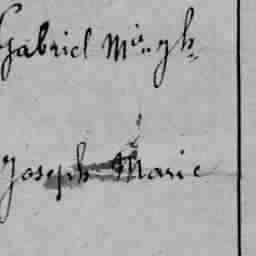 Gabriel Mie gh
Joseph Marie